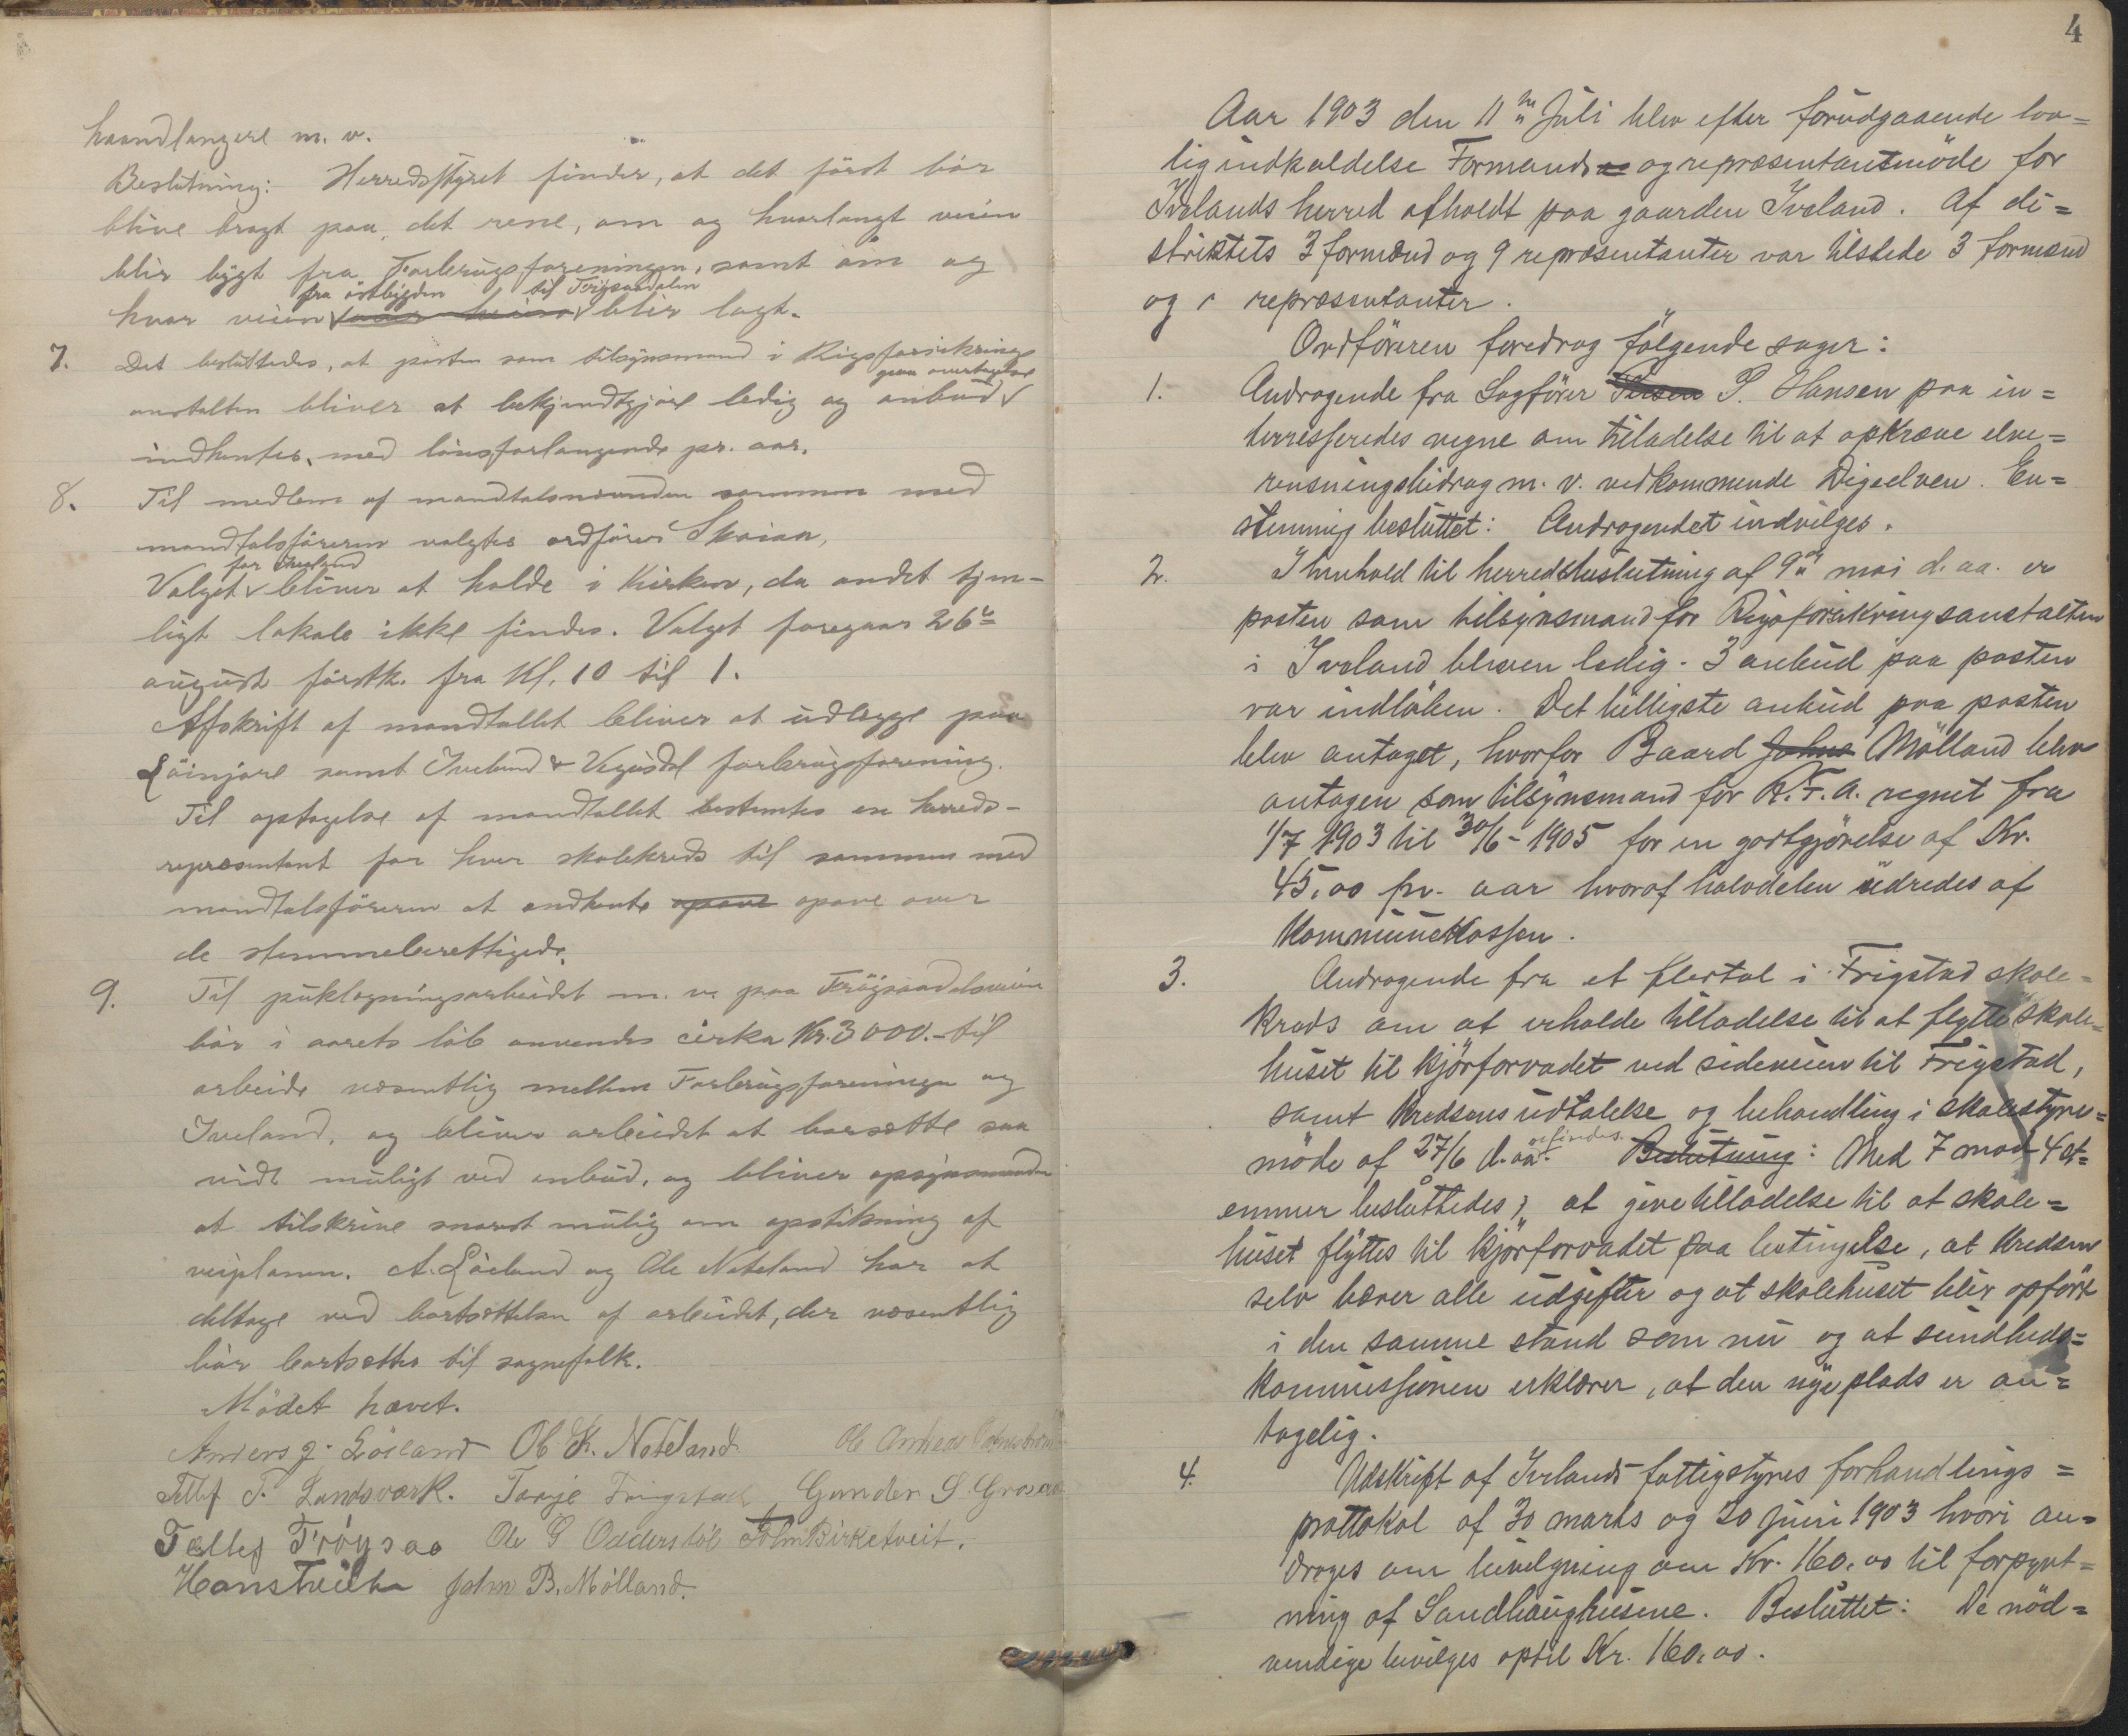 haandlangere m. v.
Beslutning: Herredsstyret finder, at det först bör
blive bragt paa det rene, om og hvorlangt veien
blir bygt fra Forbrugsforeningen, samt om og
fra östbygden til Frøysaadalen
hvor veien blir lagt.
7. Det besluttedes, at posten som tilsynsmand i Rigsforsikrings
paa overtagelse
anstalten bliver at bekjendtgjöre ledig og anbud
indhentes, med lönsforlangende pr. aar.
8. Til medlem af mandtalsnævnden sammen med
mandtalsföreren valgtes ordförer Skaiaa,
for Iveland
Valget bliver at holde i Kirken, da andet tjen-
ligt lokale ikke findes. Valget foregaar 26de
august förstk. fra Kl. 10 til 1.
Afskrift af mandtallet bliver at udlægge paa
samt Iveland & Vegusdal forbrugsforening.
Til optagelse af mandtallet bestemtes en herreds-
repræsentant for hver skolekreds til sammen med
mandtalsföreren at indhente opave opave over
de stemmeberettigede.
9. Til puklægningsarbeidet m. v. paa Frøysaadalsveien
bör i aarets löb anvendes cirka Kr. 3000.- til
arbeide væsentlig mellem Forbrugsforeningen og
Iveland, og bliver arbeidet at bortsætte saa
vidt muligt ved anbud, og bliver opsynsmanden
at tilskrive snarest mulig om opstikning af
veiplanen. A. Löiland og Ole Nateland har at
deltage ved bortsættelsen af arbeidet, der væsentlig
bör bortsættes til sognefolk.
Mödet hævet.
Anders J. Löiland Ol K. Nateland Ole Andreas
Tellef T. Landsværk. Tarje Frigstad Gunder S. Grosaas
Tellef Frøysaa Ole G Odderstöl John Birketveit.
Hans John B. Mölland.
4
Aar 1903 den 11te Juli blev efter forudgaaende lov=
lig indkaldelse Formands og repræsentantmöde for
Ivelands herred afholdt paa gaarden Iveland. Af di=
striktets 3 formænd og 9 repræsentanter var tilstede 3 formænd
og repræsentanter.
Ordföreren foredrog fölgende sager:
1. Andragende fra Sagförer P. Hansen paa in=
terresseredes vegne om tiladelse til at opkræve elve=
rensningsbidrag m. v. vedkommende Digeelven. En=
stemmig besluttet: Andragendet indvilges.
2. I henhold til herredsbeslutning af 9de mai d. aa. er
posten som tilsynsmand for Rigsforsikringsanstalten
i Iveland bleven ledig. 3 anbud paa posten
var indlöben. Det billigste anbud paa posten
blev antaget, hvorfor Baard Johns Mölland blev
antagen som tilsynsmand for R. F. A. regnet fra
1/7 1903 til 30/6 - 1905 for en godtgjörelse af Kr.
45,00 pr. aar hvoraf halvdelen udredes af
Kommunekassen.
3. Andragende fra et flertal i Frigstad skole=
kreds om at erholde tilladelse til at flytte skole=
huset til kjörforvadet ved sideveien til Frigstad,
samt kredsens udtalelse og behandling i skolestyre=
möde af 27/6 d. aa. Beslutning: Med 7 mod 4 st=
emmer besluttedes, at give tilladelse til at skole=
huset flyttes til kjörforvadet paa betingelse, at kredsen
selv bærer alle udgifter og at skolehuset blir opfört
i den samme stand som nu og at sundheds=
kommissionen erklærer, at den nye plads er an=
tagelig.
4. Udskrift af Ivelands fattigstyres forhandlings=
prottokol af 30 marts og 20 juni 1903 hvori an=
drages om bevilgning om Kr. 160,00 til forpynt=
ning af Sandhaughusene. Besluttet: De nöd=
vendige bevilges optil Kr. 160,00.